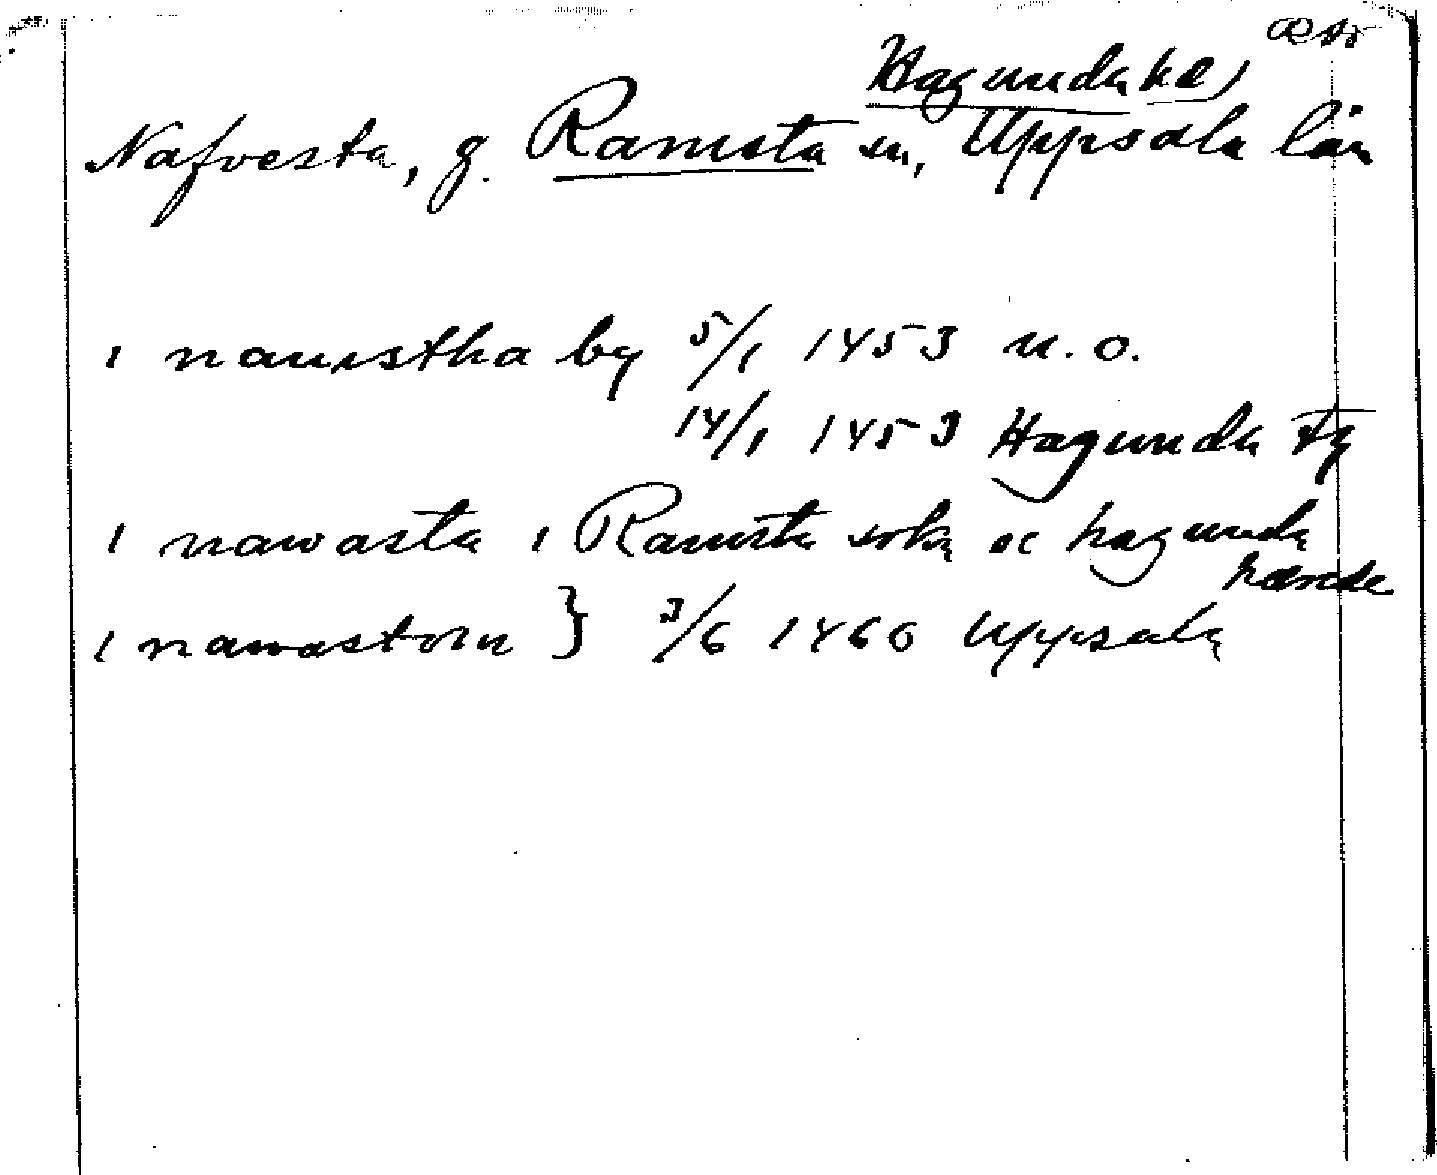 Hagunda hd
Nafvesta, g. Ramsta sn, Uppsala län
i nauistha by 5/1 1453 u. o.
14/1 1453 Hagunda tg
i nawasta i Ramsta sokn oc hagunda
hærade
i nawastom } 3/6 1460 Uppsala